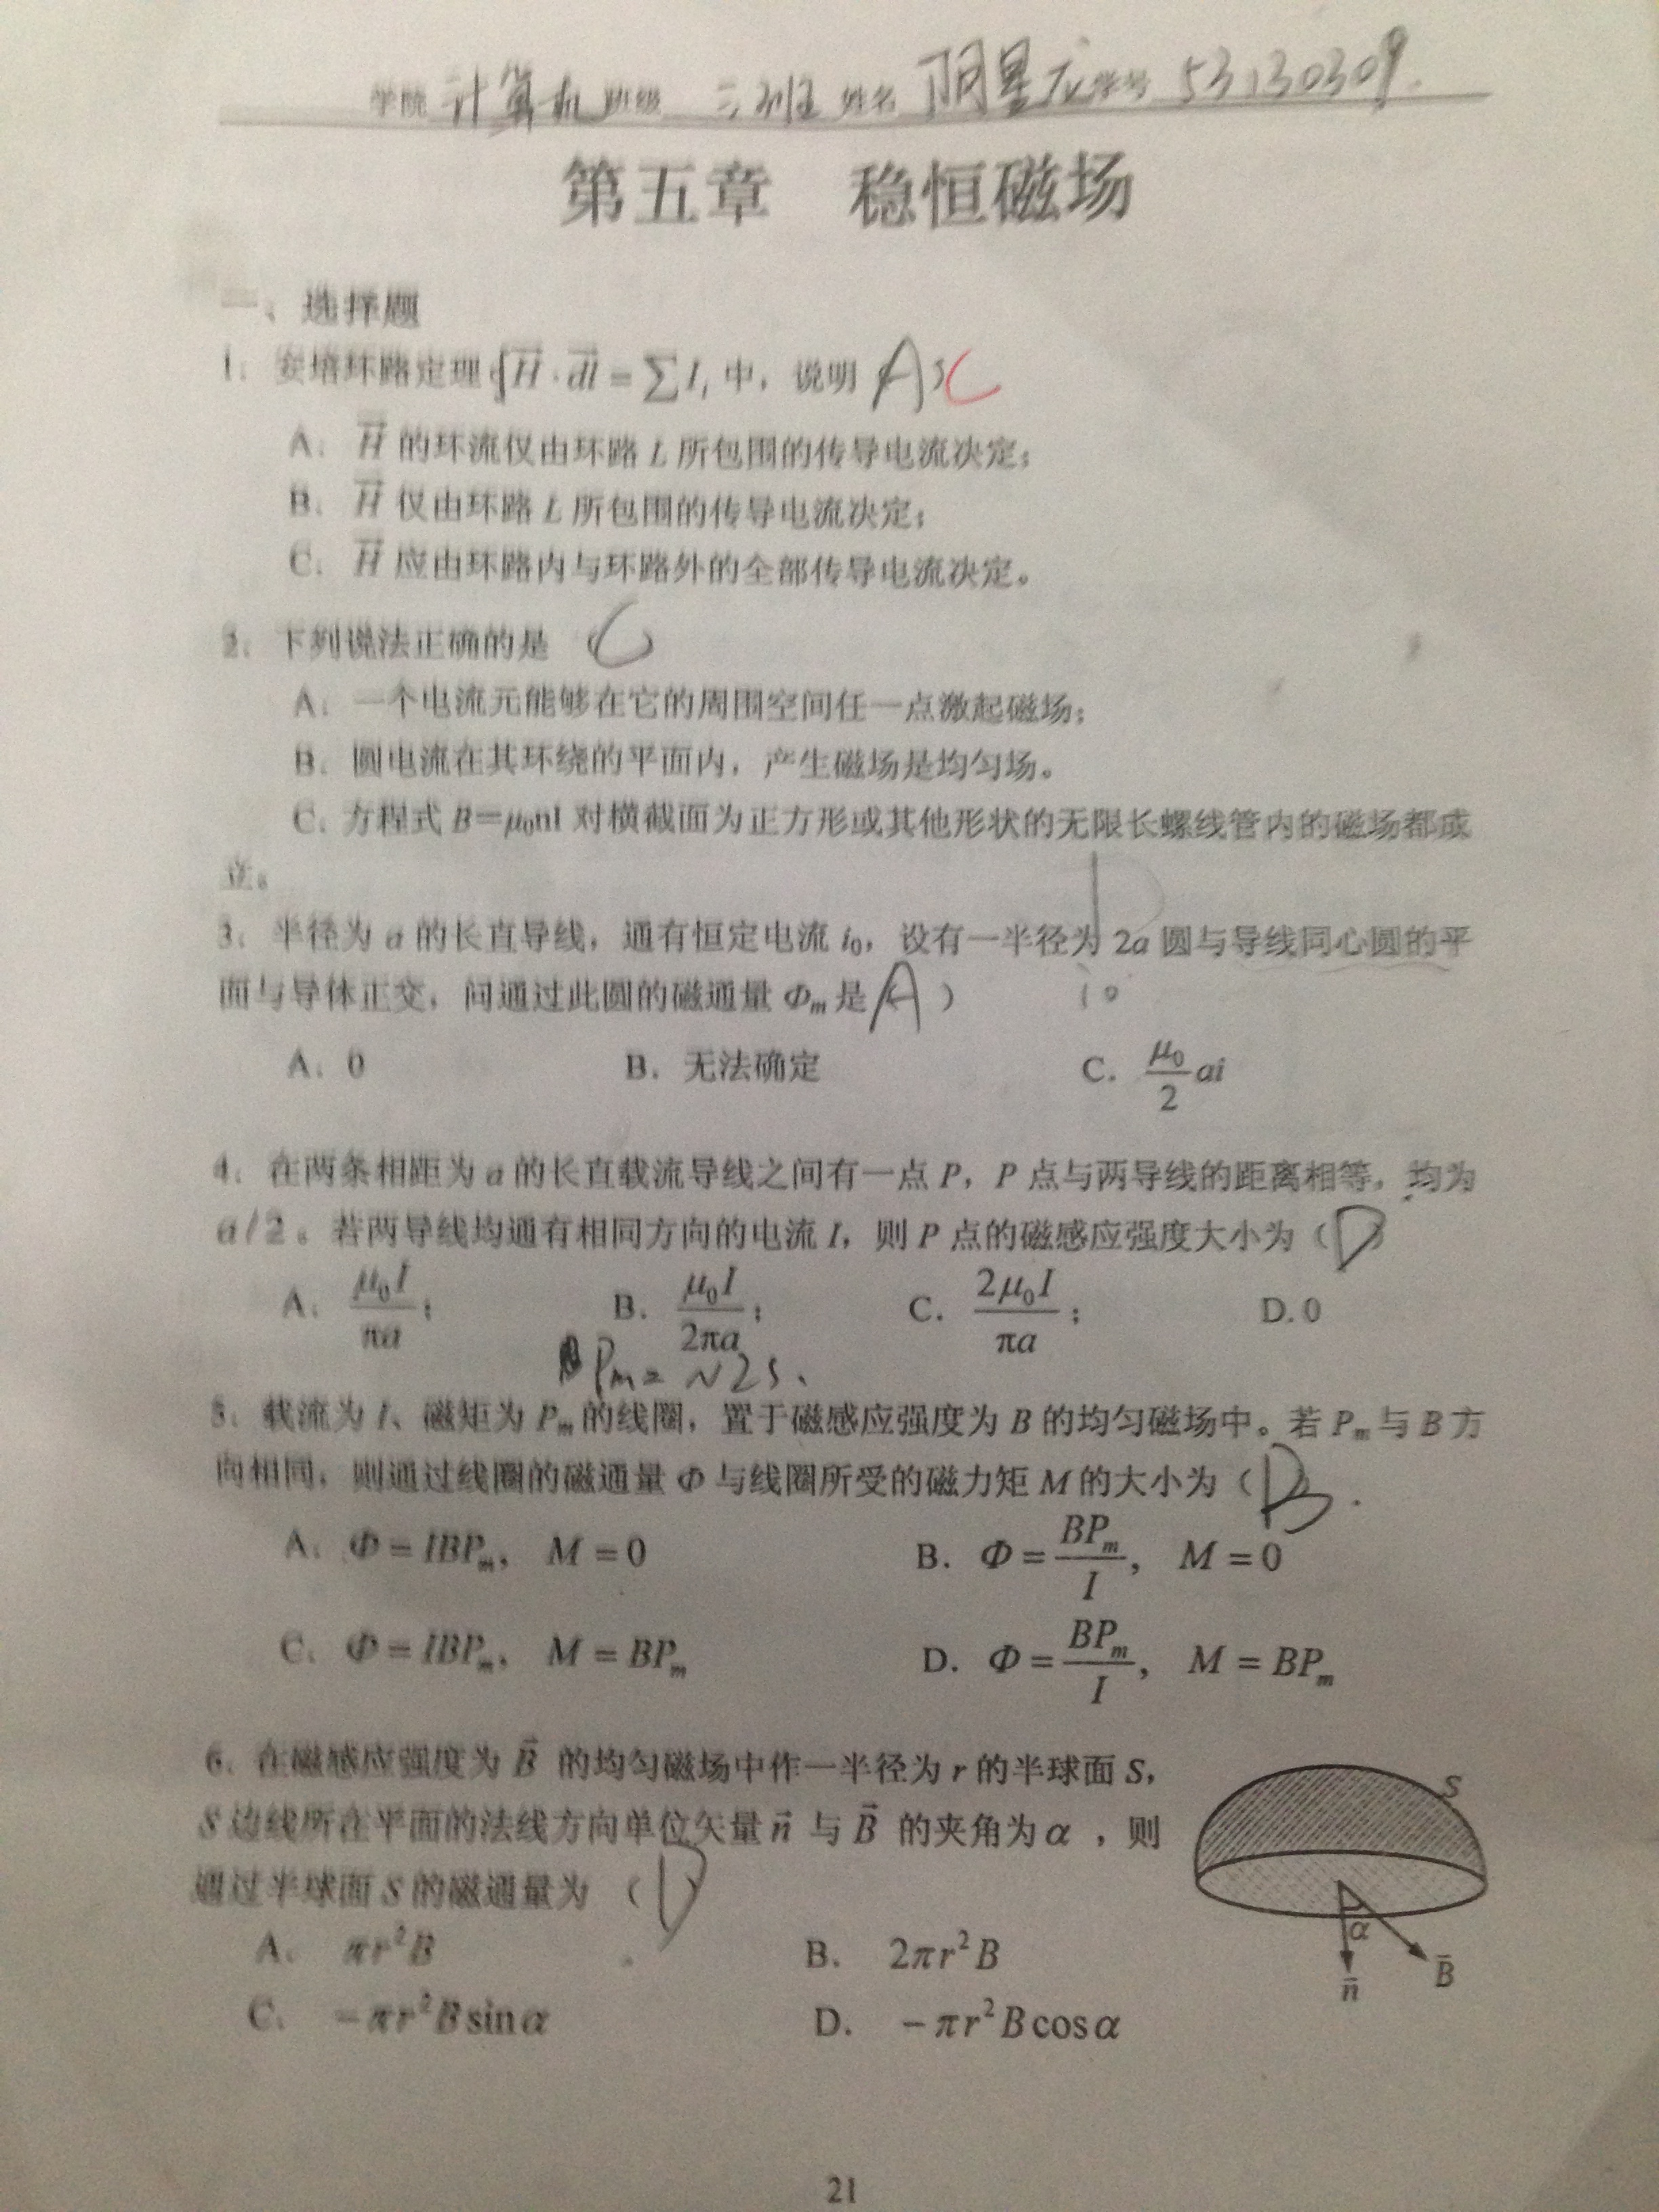 学院 计算机 班级 三班 姓名 阴星龙 学号 53130309.
第五章 稳恒磁场
一、选择题
1. 安培环路定理∮H⃗·dl⃗=∑Iᵢ 中，说明 (A) C
A. H⃗ 的环流仅由环路 L 所包围的传导电流决定；
B. H⃗ 仅由环路 L 所包围的传导电流决定；
C. H⃗ 应由环路内与环路外的全部传导电流决定。
2. 下列说法正确的是 (C)
A. 一个电流元能够在它的周围空间任一点激起磁场；
B. 圆电流在其环绕的平面内，产生磁场是均匀场。
C. 方程式 B=μ₀nI 对横截面为正方形或其他形状的无限长螺线管内的磁场都成
立。
3. 半径为 a 的长直导线，通有恒定电流 i₀，设有一半径为 2a 圆与导线同心圆的平
面与导体正交，问通过此圆的磁通量 Φₘ 是 (A)
A. 0 B. 无法确定 C. μ₀/2 ai
4. 在两条相距为 a 的长直载流导线之间有一点 P，P 点与两导线的距离相等，均为
a/2。若两导线均通有相同方向的电流 I，则 P 点的磁感应强度大小为（D）
A. μ₀I/πa； B. μ₀I/2πa； C. 2μ₀I/πa； D. 0
Pm = N2S.
5. 载流为 I、磁矩为 Pₘ 的线圈，置于磁感应强度为 B 的均匀磁场中。若 Pₘ 与 B 方
向相同，则通过线圈的磁通量 Φ 与线圈所受的磁力矩 M 的大小为（B）.
A. Φ=IBPₘ， M=0 B. Φ=BPₘ/I， M=0
C. Φ=IBPₘ， M=BPₘ D. Φ=BPₘ/I， M=BPₘ
6. 在磁感应强度为 B⃗ 的均匀磁场中作一半径为 r 的半球面 S，
S 边线所在平面的法线方向单位矢量 n⃗ 与 B⃗ 的夹角为 α ，则
通过半球面 S 的磁通量为 （D
A. πr²B B. 2πr²B
C. −πr²B sinα D. −πr²B cosα
S
α
n⃗
B⃗
21